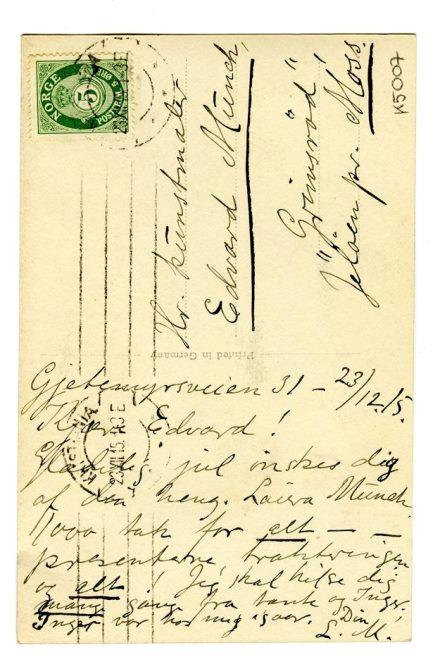 NORGE
5
POSTFRIM
5 ØRE
K5007
Hr. Kunstmaler
Edvard Munch,
"Grimsrød"
Jeløen pr. Moss.
Printed in Germany
Gjetemyrsveien 31 – 23/12.15.
Kjære Edvard!
Glædelig jul ønskes dig
af din heng. Laura Munch,
1000 tak for alt — —
presenterne, trakteringen
og alt! Jeg skal hilse dig
mange gange fra tante og Inger.
Inger var hos mig igaar. Din
L. M.
KRISTIANIA
23 XII 15